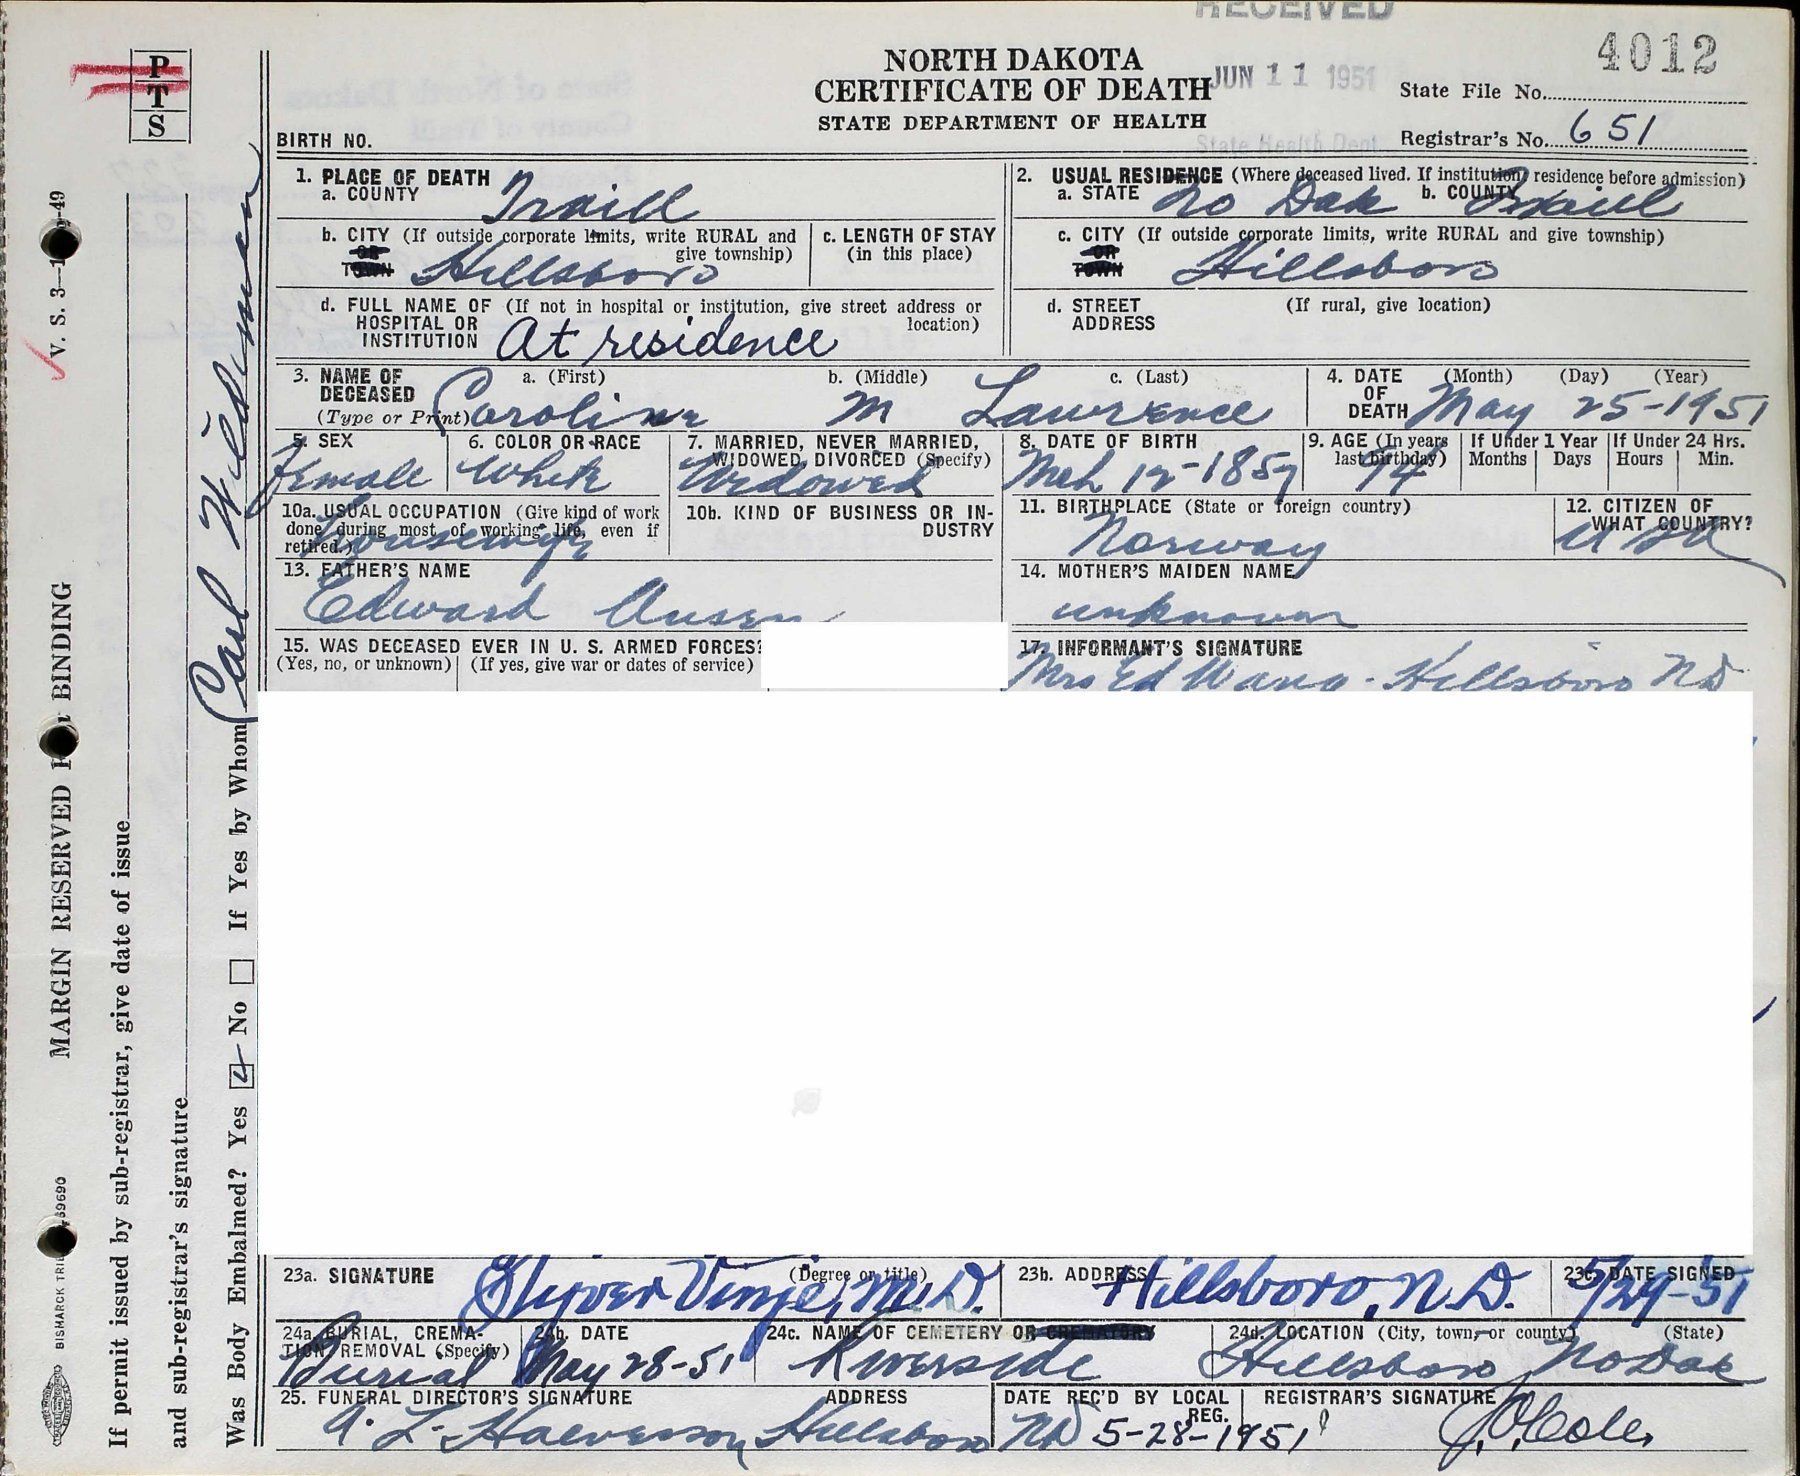 RECEIVED
4012
NORTH DAKOTA
CERTIFICATE OF DEATH
STATE DEPARTMENT OF HEALTH
JUN 11 1951
State Health Dept
State File No.
BIRTH NO.
Registrar's No. 651
P
T
S
1. PLACE OF DEATH
a. COUNTY Traill
2. USUAL RESIDENCE (Where deceased lived. If institution, residence before admission)
a. STATE No Dak b. COUNTY Traill
b. CITY (If outside corporate limits, write RURAL and give township)
OR
TOWN Hillsboro
c. LENGTH OF STAY (in this place)
c. CITY (If outside corporate limits, write RURAL and give township)
OR
TOWN Hillsboro
d. FULL NAME OF (If not in hospital or institution, give street address or location)
HOSPITAL OR
INSTITUTION At residence
d. STREET ADDRESS (If rural, give location)
3. NAME OF DECEASED (Type or Print) a. (First) b. (Middle) c. (Last)
Caroline M Lawrence
4. DATE OF DEATH (Month) (Day) (Year)
May 25-1951
5. SEX
Female
6. COLOR OR RACE
White
7. MARRIED, NEVER MARRIED, WIDOWED, DIVORCED (Specify)
Widowed
8. DATE OF BIRTH
Mch 12-1857
9. AGE (In years last birthday)
94
If Under 1 Year
Months Days
If Under 24 Hrs.
Hours Min.
10a. USUAL OCCUPATION (Give kind of work done during most of working life, even if retired.)
Housewife
10b. KIND OF BUSINESS OR INDUSTRY
11. BIRTHPLACE (State or foreign country)
Norway
12. CITIZEN OF WHAT COUNTRY?
USA
13. FATHER'S NAME
Edward
14. MOTHER'S MAIDEN NAME
unknown
15. WAS DECEASED EVER IN U. S. ARMED FORCES?
(Yes, no, or unknown) (If yes, give war or dates of service)
17. INFORMANT'S SIGNATURE
Mrs Ed Wang - Hillsboro ND
23a. SIGNATURE (Degree or title)
Vinje, M.D.
23b. ADDRESS
Hillsboro, N.D.
23c. DATE SIGNED
5/29-51
24a. BURIAL, CREMATION REMOVAL (Specify)
Burial
24b. DATE
May 28-51
24c. NAME OF CEMETERY OR CREMATORY
Riverside
24d. LOCATION (City, town, or county) (State)
Hillsboro NoDak
25. FUNERAL DIRECTOR'S SIGNATURE ADDRESS
A. L. Halverson Hillsboro ND
DATE REC'D BY LOCAL REG.
5-28-1951
REGISTRAR'S SIGNATURE
J. O. Cole
V. S. 3—1 -49
MARGIN RESERVED FOR BINDING
BISMARCK TRIB 69690
If permit issued by sub-registrar, give date of issue
and sub-registrar's signature
Was Body Embalmed? Yes No If Yes by Whom Carl Wildeman